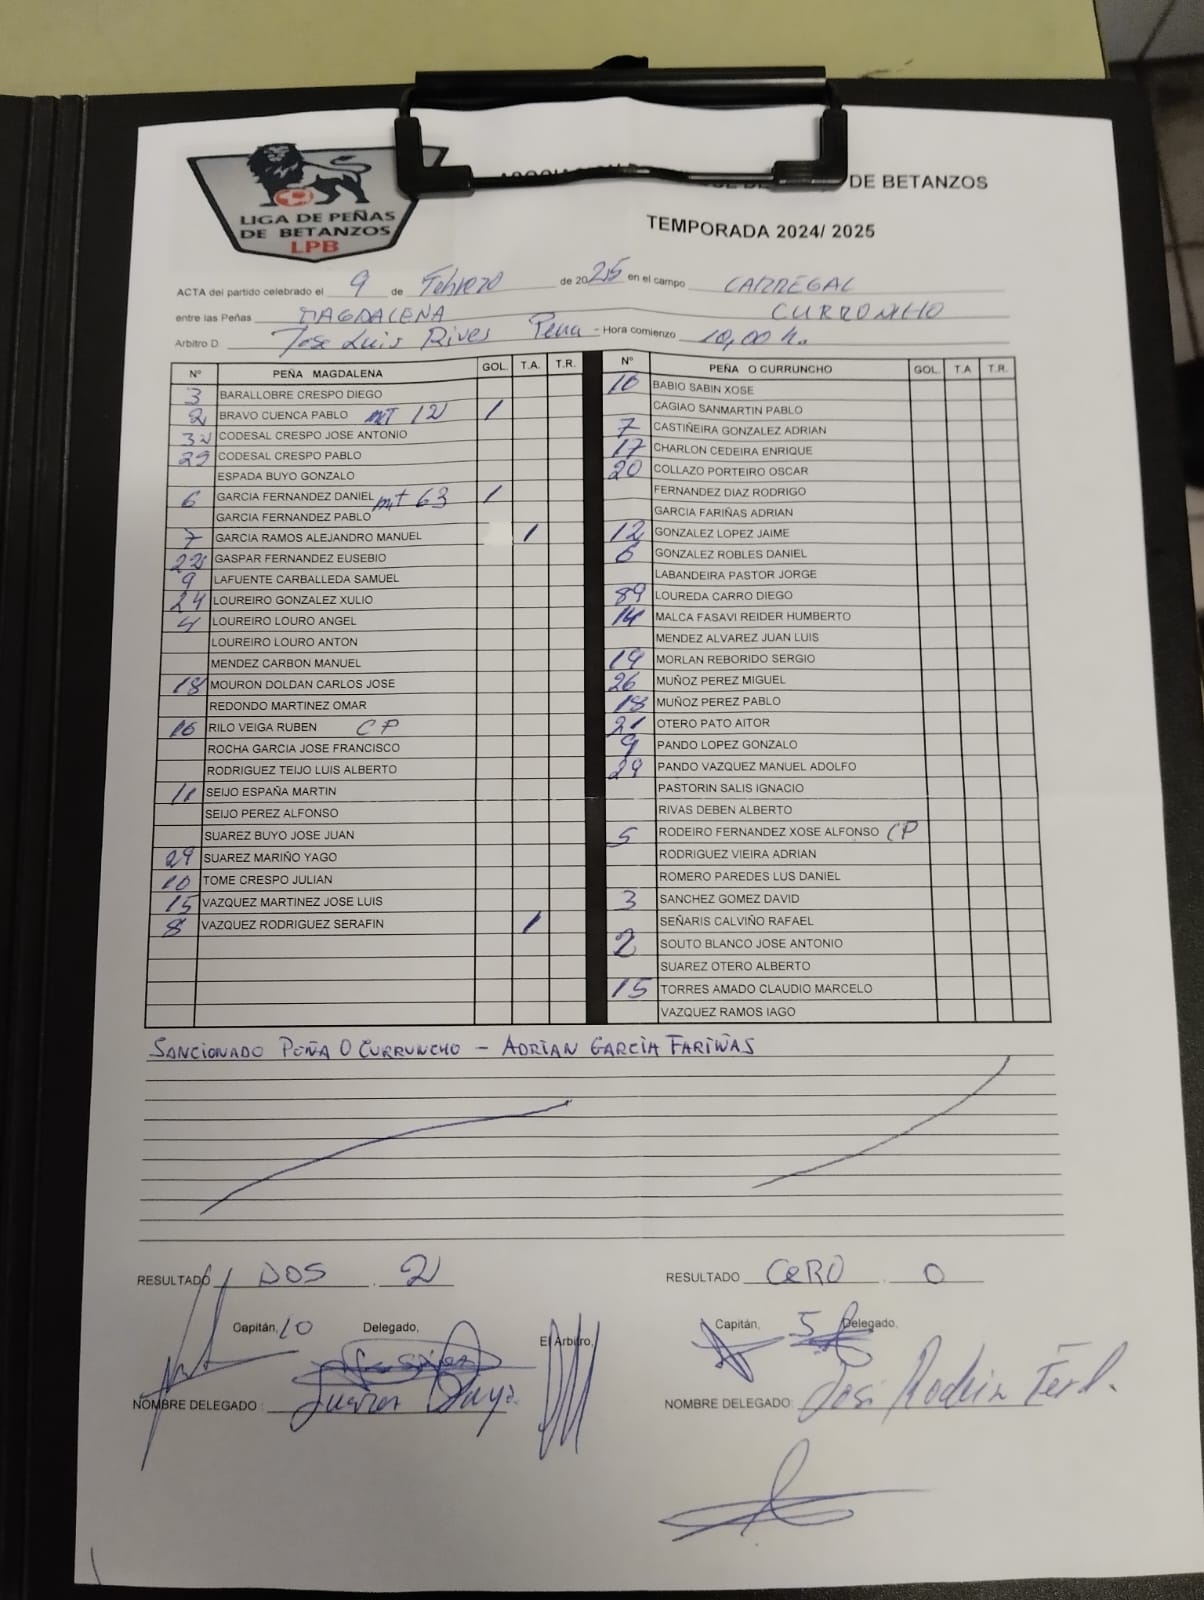 LIGA DE PEÑAS
DE BETANZOS
LPB
DE BETANZOS
TEMPORADA 2024/ 2025
ACTA del partido celebrado el 9 de Febrero de 2025 en el campo CARREGAL
entre las Peñas MAGDALENA CURRUNCHO
Arbitro D. Jose Luis Rives Pena - Hora comienzo 10,00 h.
Nº PEÑA MAGDALENA GOL. T.A. T.R.
3 BARALLOBRE CRESPO DIEGO
2 BRAVO CUENCA PABLO mt 12 1
32 CODESAL CRESPO JOSE ANTONIO
29 CODESAL CRESPO PABLO
ESPADA BUYO GONZALO
6 GARCIA FERNANDEZ DANIEL mt 63 1
GARCIA FERNANDEZ PABLO
7 GARCIA RAMOS ALEJANDRO MANUEL 1
22 GASPAR FERNANDEZ EUSEBIO
9 LAFUENTE CARBALLEDA SAMUEL
24 LOUREIRO GONZALEZ XULIO
4 LOUREIRO LOURO ANGEL
LOUREIRO LOURO ANTON
MENDEZ CARBON MANUEL
18 MOURON DOLDAN CARLOS JOSE
REDONDO MARTINEZ OMAR
16 RILO VEIGA RUBEN CP
ROCHA GARCIA JOSE FRANCISCO
RODRIGUEZ TEIJO LUIS ALBERTO
11 SEIJO ESPAÑA MARTIN
SEIJO PEREZ ALFONSO
SUAREZ BUYO JOSE JUAN
29 SUAREZ MARIÑO YAGO
10 TOME CRESPO JULIAN
15 VAZQUEZ MARTINEZ JOSE LUIS
8 VAZQUEZ RODRIGUEZ SERAFIN 1
Nº PEÑA O CURRUNCHO GOL. T.A T.R.
10 BABIO SABIN XOSE
CAGIAO SANMARTIN PABLO
7 CASTIÑEIRA GONZALEZ ADRIAN
17 CHARLON CEDEIRA ENRIQUE
20 COLLAZO PORTEIRO OSCAR
FERNANDEZ DIAZ RODRIGO
GARCIA FARIÑAS ADRIAN
12 GONZALEZ LOPEZ JAIME
6 GONZALEZ ROBLES DANIEL
LABANDEIRA PASTOR JORGE
89 LOUREDA CARRO DIEGO
14 MALCA FASAVI REIDER HUMBERTO
MENDEZ ALVAREZ JUAN LUIS
19 MORLAN REBORIDO SERGIO
26 MUÑOZ PEREZ MIGUEL
18 MUÑOZ PEREZ PABLO
21 OTERO PATO AITOR
9 PANDO LOPEZ GONZALO
29 PANDO VAZQUEZ MANUEL ADOLFO
PASTORIN SALIS IGNACIO
RIVAS DEBEN ALBERTO
5 RODEIRO FERNANDEZ XOSE ALFONSO CP
RODRIGUEZ VIEIRA ADRIAN
ROMERO PAREDES LUS DANIEL
3 SANCHEZ GOMEZ DAVID
SEÑARIS CALVIÑO RAFAEL
2 SOUTO BLANCO JOSE ANTONIO
SUAREZ OTERO ALBERTO
15 TORRES AMADO CLAUDIO MARCELO
VAZQUEZ RAMOS IAGO
SANCIONADO PEÑA O CURRUNCHO - ADRIAN GARCIA FARIÑAS
RESULTADO DOS 2 RESULTADO CERO 0
Capitán, 10 Delegado, El Arbitro, Capitán, 5 Delegado,
NOMBRE DELEGADO : Suarez Buyo NOMBRE DELEGADO: Jose